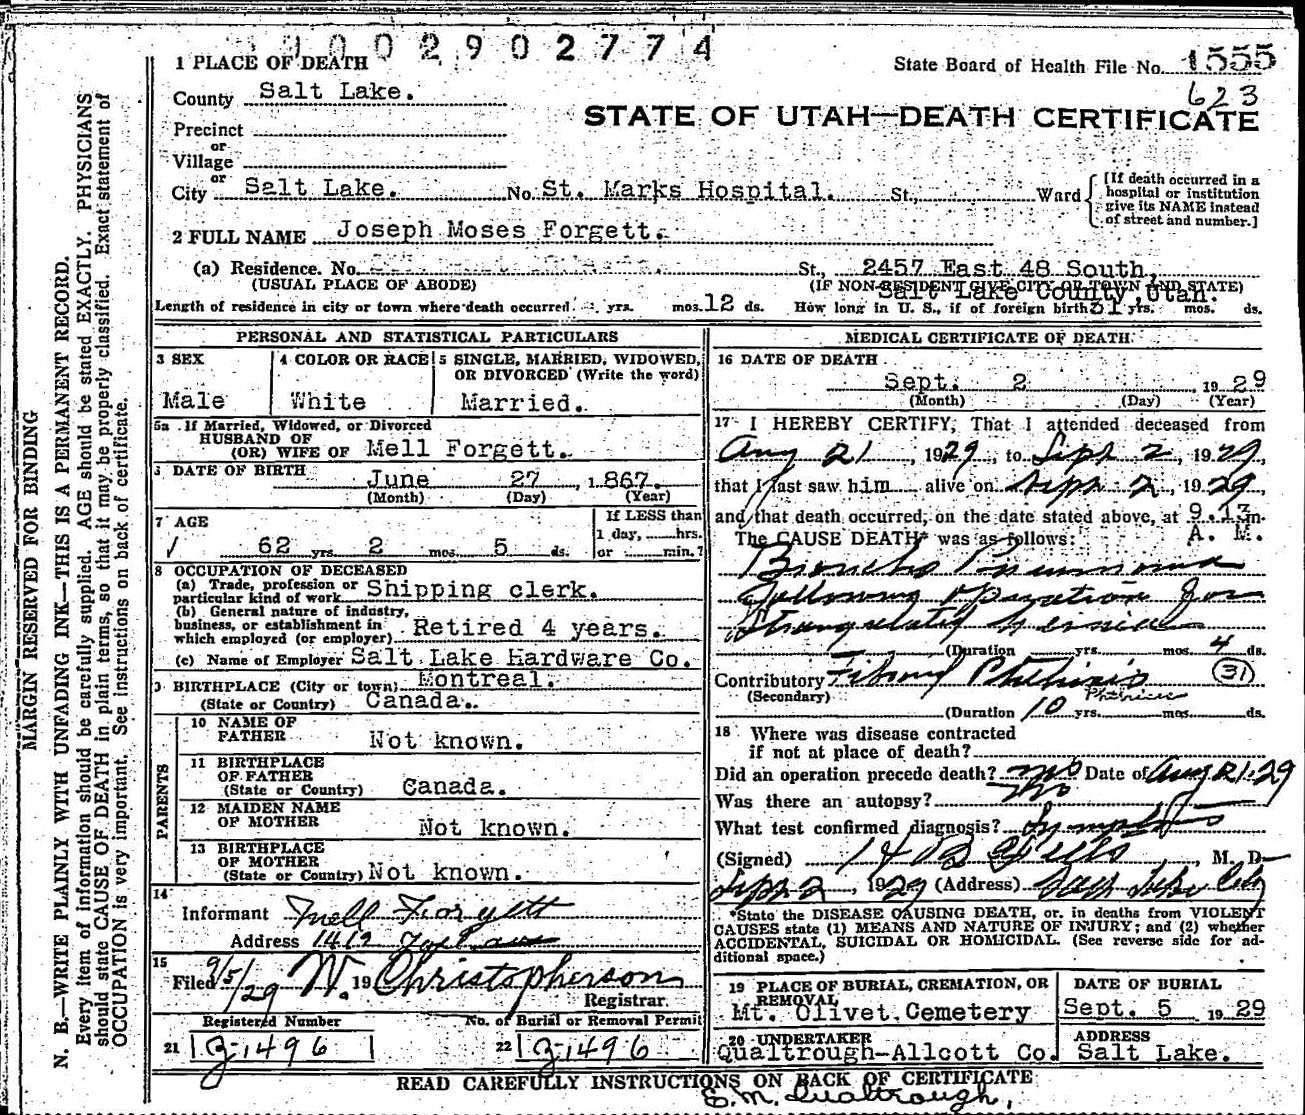 9 0 0 2 9 0 2 7 7 4
1 PLACE OF DEATH
State Board of Health File No. 1555
623
County Salt Lake.
STATE OF UTAH—DEATH CERTIFICATE
Precinct
or
Village
or
City Salt Lake. No. St. Marks Hospital. St., Ward
[If death occurred in a
hospital or institution
give its NAME instead
of street and number.]
2 FULL NAME Joseph Moses Forgett.
(a) Residence. No. St., 2457 East 48 South,
(USUAL PLACE OF ABODE) (IF NON-RESIDENT GIVE CITY OR TOWN AND STATE)
Salt Lake County, Utah.
Length of residence in city or town where death occurred yrs. mos. 12 ds. How long in U. S., if of foreign birth 31 yrs. mos. ds.
PERSONAL AND STATISTICAL PARTICULARS
3 SEX 4 COLOR OR RACE 5 SINGLE, MARRIED, WIDOWED,
OR DIVORCED (Write the word)
Male White Married.
5a If Married, Widowed, or Divorced
HUSBAND OF
(OR) WIFE OF Mell Forgett.
DATE OF BIRTH June 27, 1867.
(Month) (Day) (Year)
7 AGE If LESS than
1 day, hrs.
62 yrs. 2 mos. 5 ds. or min.?
8 OCCUPATION OF DECEASED
(a) Trade, profession or
particular kind of work Shipping clerk.
(b) General nature of industry,
business, or establishment in
which employed (or employer) Retired 4 years.
(c) Name of Employer Salt Lake Hardware Co.
BIRTHPLACE (City or town) Montreal.
(State or Country) Canada.
PARENTS
10 NAME OF
FATHER Not known.
11 BIRTHPLACE
OF FATHER
(State or Country) Canada.
12 MAIDEN NAME
OF MOTHER Not known.
13 BIRTHPLACE
OF MOTHER
(State or Country) Not known.
14
Informant Mell Forgett
Address 1412
15
Filed 9/5/29 19 W. Christopherson
Registrar.
Registered Number No. of Burial or Removal Permit
21 3-1496 22 3-1496
MEDICAL CERTIFICATE OF DEATH
16 DATE OF DEATH
Sept. 2, 1929
(Month) (Day) (Year)
17 I HEREBY CERTIFY, That I attended deceased from
Aug 21, 1929, to Sept 2, 1929,
that I last saw him alive on Sept 2, 1929,
and that death occurred, on the date stated above, at 9.13 m.
The CAUSE DEATH* was as follows: A. M.
Broncho Pneumonia
Following operation for
Strangulated hernia
(Duration yrs. mos. 4 ds.
Contributory Fibroid Phthisis (31)
(Secondary) Phthisis
(Duration 10 yrs. mos. ds.
18 Where was disease contracted
if not at place of death?
Did an operation precede death? yes Date of Aug 21-29
Was there an autopsy? no
What test confirmed diagnosis? Symptoms
(Signed) , M. D.
Sept 2, 1929 (Address) Salt Lake City
*State the DISEASE CAUSING DEATH, or in deaths from VIOLENT
CAUSES state (1) MEANS AND NATURE OF INJURY; and (2) whether
ACCIDENTAL, SUICIDAL OR HOMICIDAL. (See reverse side for ad-
ditional space.)
19 PLACE OF BURIAL, CREMATION, OR
REMOVAL
Mt. Olivet Cemetery
DATE OF BURIAL
Sept. 5 1929
20 UNDERTAKER
Qualtrough-Allcott Co.
ADDRESS
Salt Lake.
READ CAREFULLY INSTRUCTIONS ON BACK OF CERTIFICATE
E. M. Qualtrough,
MARGIN RESERVED FOR BINDING
N. B.—WRITE PLAINLY WITH UNFADING INK—THIS IS A PERMANENT RECORD.
Every item of information should be carefully supplied. AGE should be stated EXACTLY. PHYSICIANS
should state CAUSE OF DEATH in plain terms, so that it may be properly classified. Exact statement of
OCCUPATION is very important. See instructions on back of certificate.